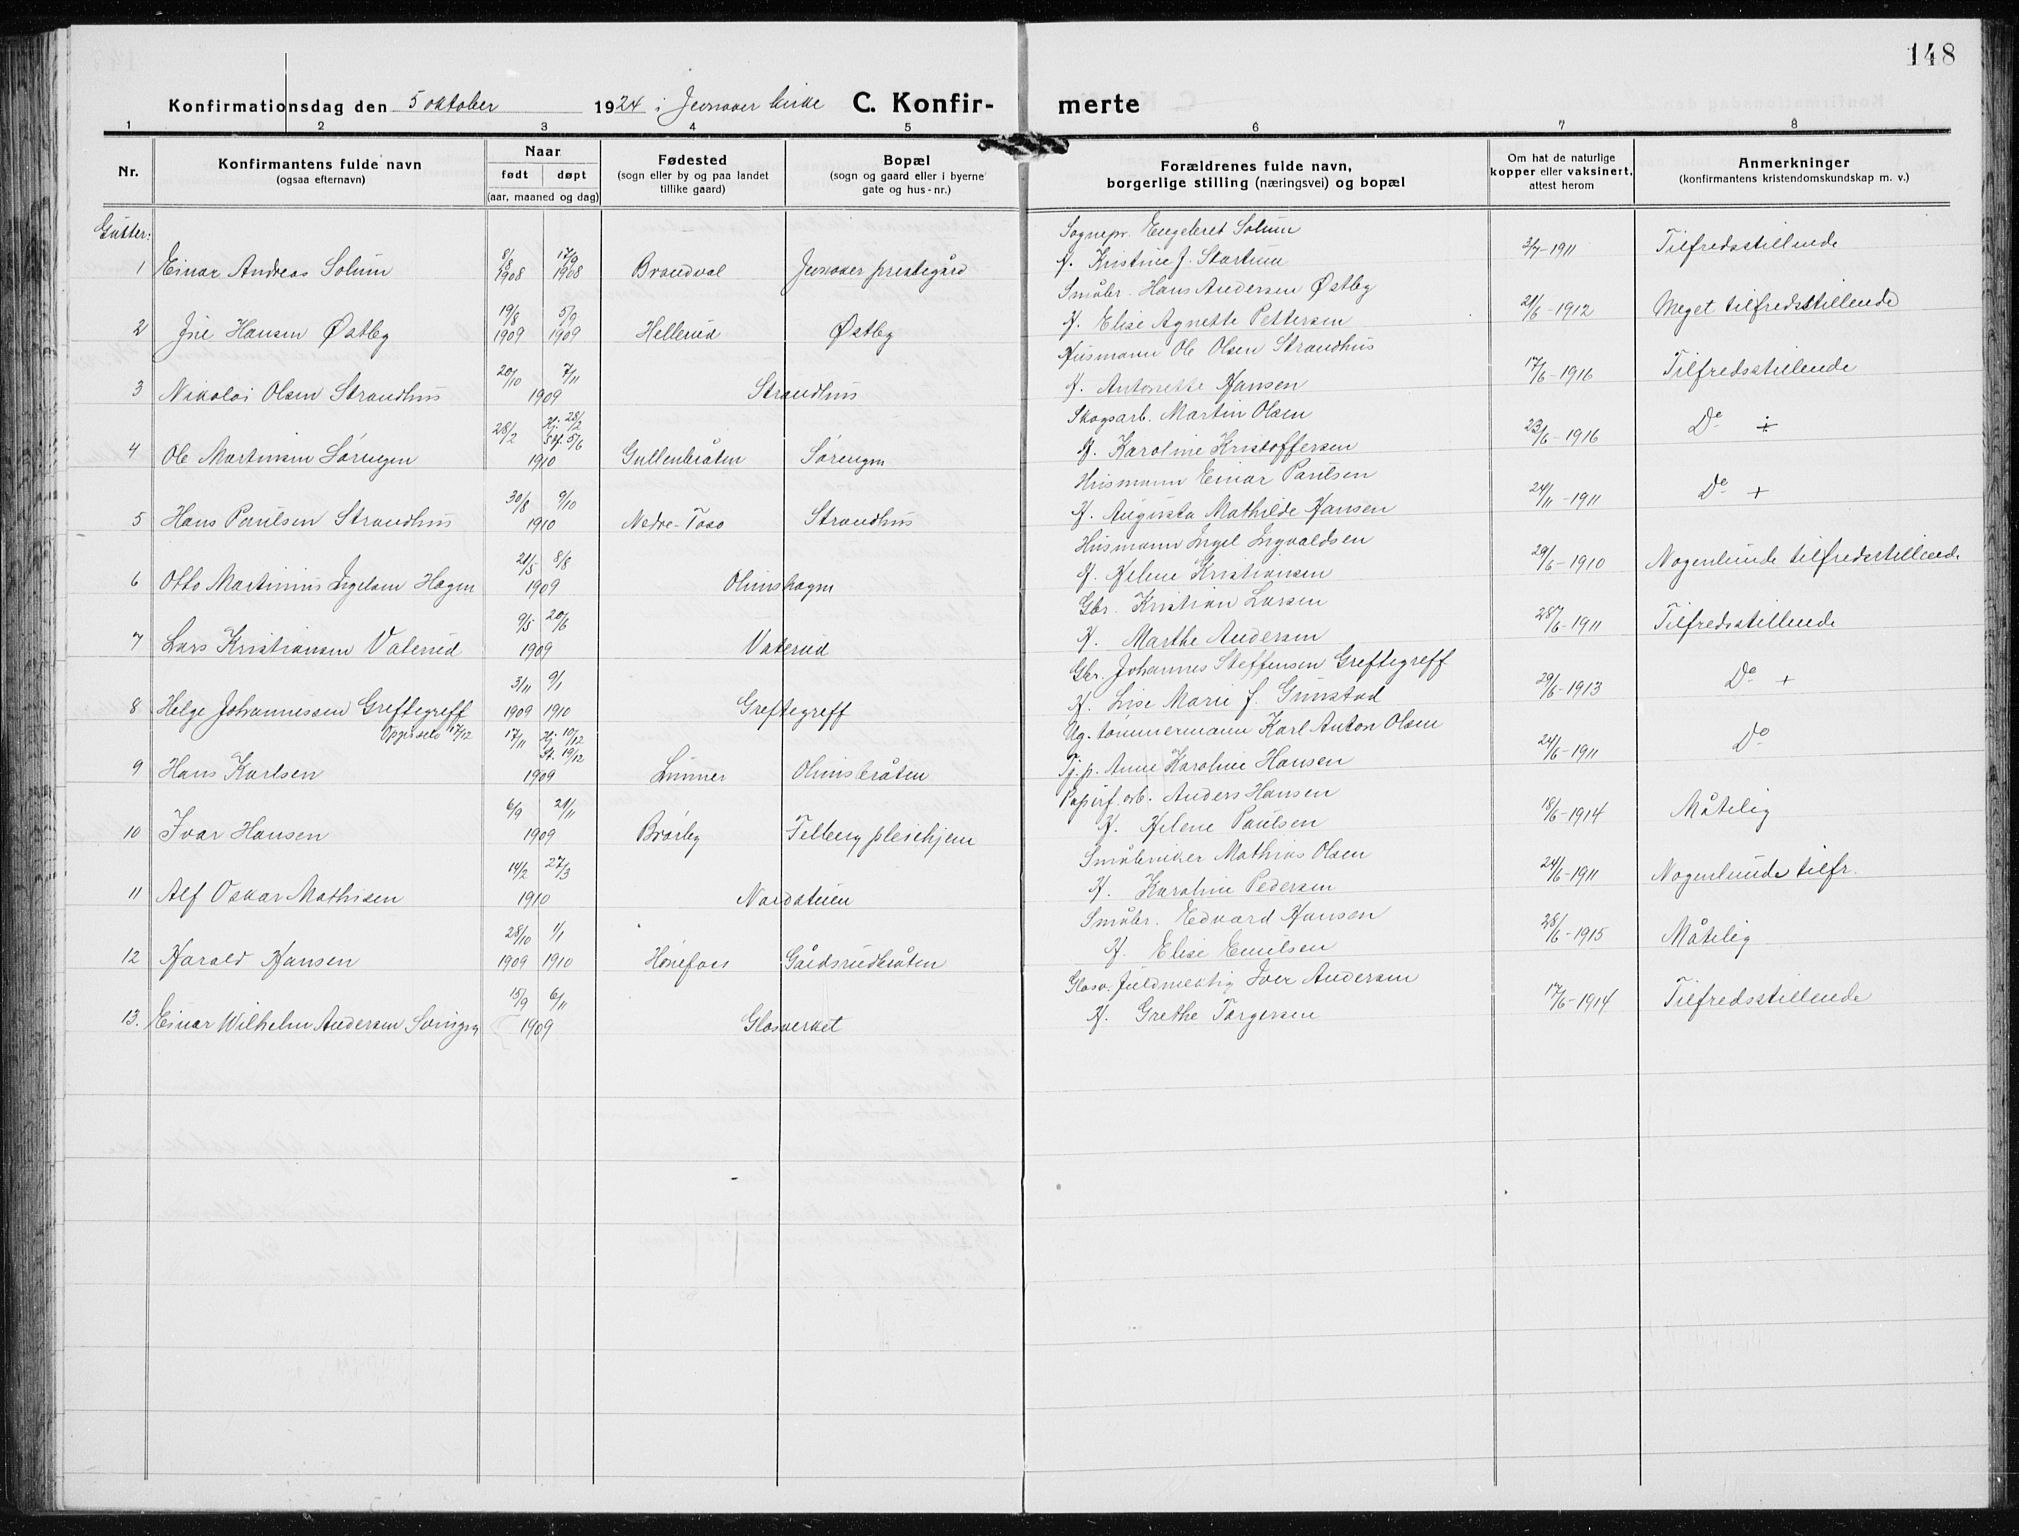 148
Konfirmationsdag den 5 oktober 1924 i Jevnaker kirke C. Konfir- merte
1 2 3 4 5 6 7 8
Nr. Konfirmantens fulde navn (ogsaa efternavn) Naar født døpt (aar, maaned og dag) Fødested (sogn eller by og paa landet tillike gaard) Bopæl (sogn og gaard eller i byerne gate og hus-nr.) Forældrenes fulde navn, borgerlige stilling (næringsvei) og bopæl Om hat de naturlige kopper eller vaksinert, attest herom Anmerkninger (konfirmantens kristendomskundskap m. v.)
Gutter:
1 Einar Andreas Solum 8/8 1908 17/9 1908 Brandval Jevnaker prestegård Sognepr. Engebret Solum
H. Kristine J. Startuen 3/7-1911 Tilfredsstillende
2 Jne Hansen Østby 19/8 1909 5/9 1909 Hellerud Østby Småbr. Hans Andersen Østby
H. Elise Agnette Pettersen 21/6-1912 Meget tilfredsstillende
3 Nikolai Olsen Strandhus 20/10 7/11 1909 Strandhus Husmann Ole Olsen Strandhus
H. Antonette Hansen 17/6-1916 Tilfredsstillende
4 Ole Martinsen Sørengen 28/2 Hj. 28/2 Stf. 5/6 1910 Gullenbråten Sørengen Skogsarb. Martin Olsen
H. Karoline Kristoffersen 23/6-1916 Do ÷
5 Hans Paulsen Strandhus 30/8 9/10 1910 Nedre-Toso Strandhus Husmann Einar Paulsen
H. Augusta Mathilde Hansen 24/11-1911 Do +
6 Otto Martinius Ingelsen Hagen 21/5 8/8 1909 Olimshagen Husmann Ingel Ingvaldsen
H. Helene Kristiansen 29/6-1910 Nogenlunde tilfredsstillende
7 Lars Kristiansen Vaterud 9/5 20/6 1909 Vaterud Gbr. Kristian Larsen
H. Marthe Andersen 28/6-1911 Tilfredsstillende
8 Helge Johannessen Greftegreff 3/11 1909 9/1 1910 Greftegreff Gbr. Johannes Steffensen Greftegreff
H. Lise Marie J. Gunstad 29/6-1913 Do +
9 Hans Karlsen Oppgivelse 17/12 17/11 Hj. 10/12 St. 19/12 1909 Lunner Olimsbråten Ug. tømmermann Karl Anton Olsen
Tj.p. Anne Karoline Hansen 24/6-1911 Do
10 Ivar Hansen 6/9 21/11 1909 Bråtby Felberg pleiehjem Papirf.arb. Anders Hansen
H. Helene Paulsen 18/6-1914 Måtelig
11 Alf Oskar Mathisen 14/2 27/3 1910 Nordstuen Småbruker Mathias Olsen
H. Karoline Pedersen 24/6-1911 Nogenlunde tilfr.
12 Harald Hansen 28/10 1909 1/1 1910 Hønefoss Gårdsrudbråten Småbr. Edvard Hansen
H. Elise Emilsen 28/6-1915 Måtelig
13. Einar Wilhelm Andersen 15/9 6/11 1909 Glasverket Glasv. fuldmektig Iver Andersen
H. Grethe Torgersen 17/6-1914 Tilfredsstillende